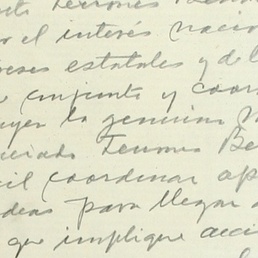 Terrones Be
or el interés nacio
reses estatales y de l
conjunta y coor
uyer la genuina
uerado Terrones Be
cil coordinar op
deas para llegar a
que implique acci